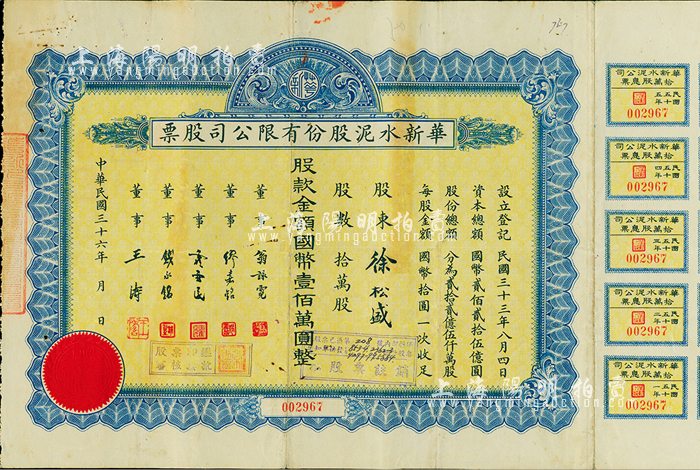 上海陽明拍賣
www.yangmingauction.com
華新水泥股份有限公司股票
設立登記 民國三十三年八月四日
資本總額 國幣貳佰貳拾伍億圓
股份總額 分為貳拾貳億伍千萬股
每股金額 國幣拾圓一次收足
股東 徐松盛
股數 拾萬股
股款金額國幣壹佰萬圓整
董事
董事
董事
董事 錢永銘
董事 王濤
中華民國三十六年 月 日
002967
華新水泥公司
拾萬股息票
民國五十五年
002967
華新水泥公司
拾萬股息票
民國五十四年
002967
華新水泥公司
拾萬股息票
民國五十三年
002967
華新水泥公司
拾萬股息票
民國五十二年
002967
華新水泥公司
拾萬股息票
民國五十一年
002967